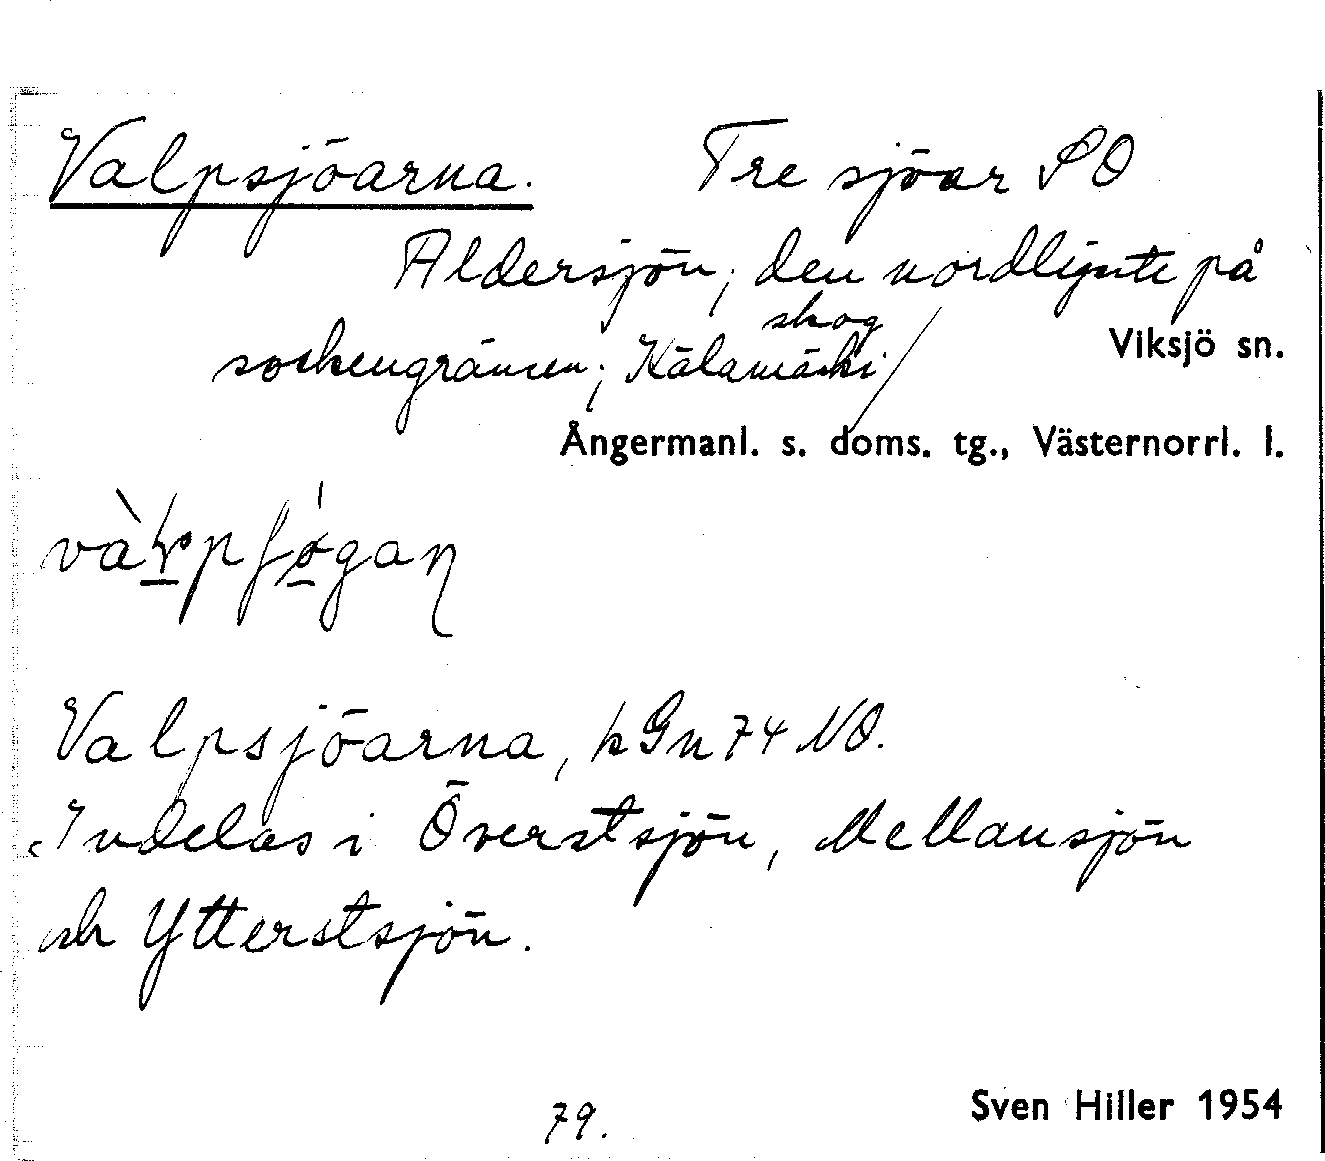 Valpsjöarna. Tre sjöar SO
Aldersjön, den nordligste på
sockengränsen; skog
Viksjö sn.
Ångermanl. s. doms. tg., Västernorrl. l.
Valpsjöarna, kGn 74 NO.
Indelas i Överstsjön, Mellansjön
och Ytterstsjön.
79.
Sven Hiller 1954